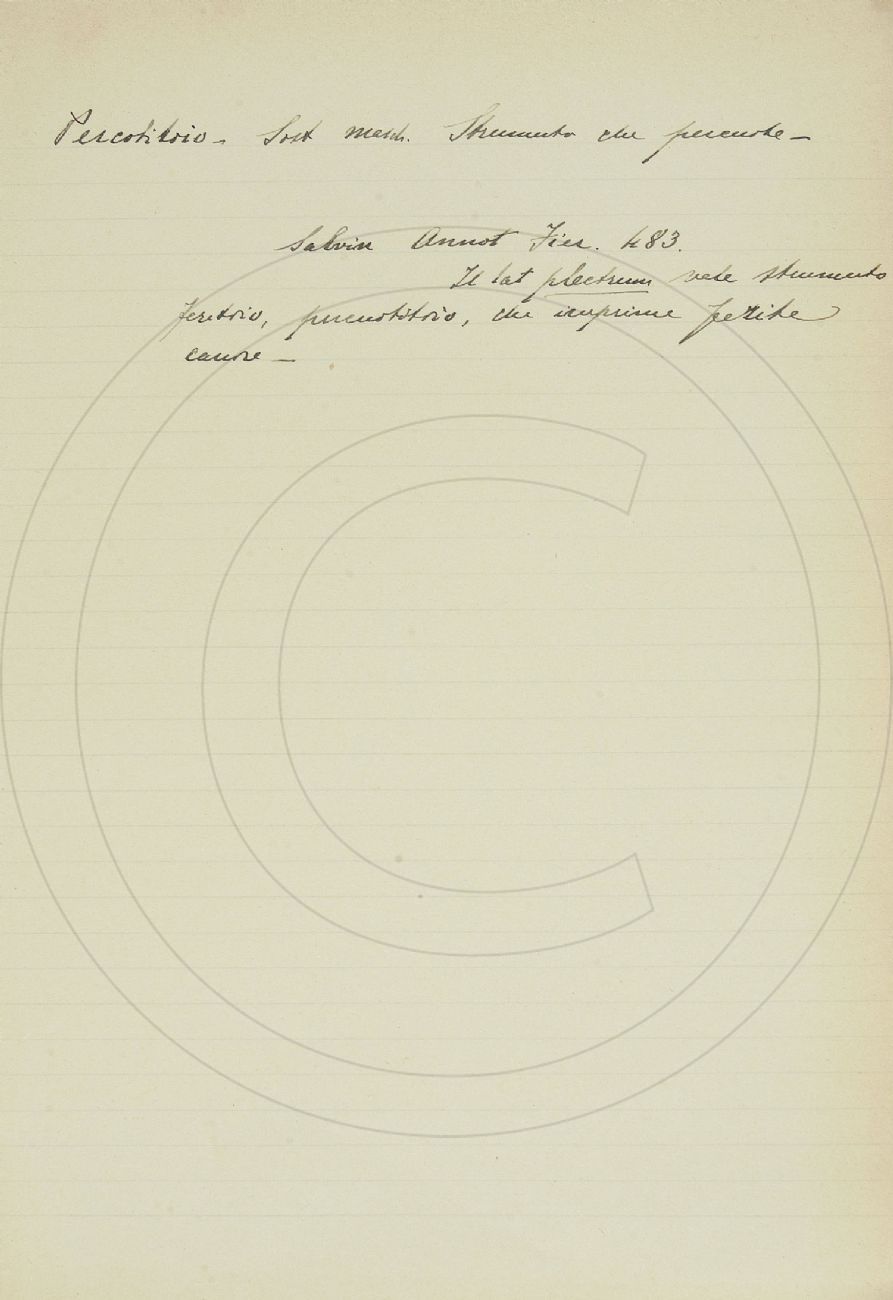 Percotitoio - Sost masch. Strumento che percuote -
Salvin Annot Fier. 483.
Il lat plectrum vale strumento
feritoio, percuotitoio, che imprime ferite
canore -